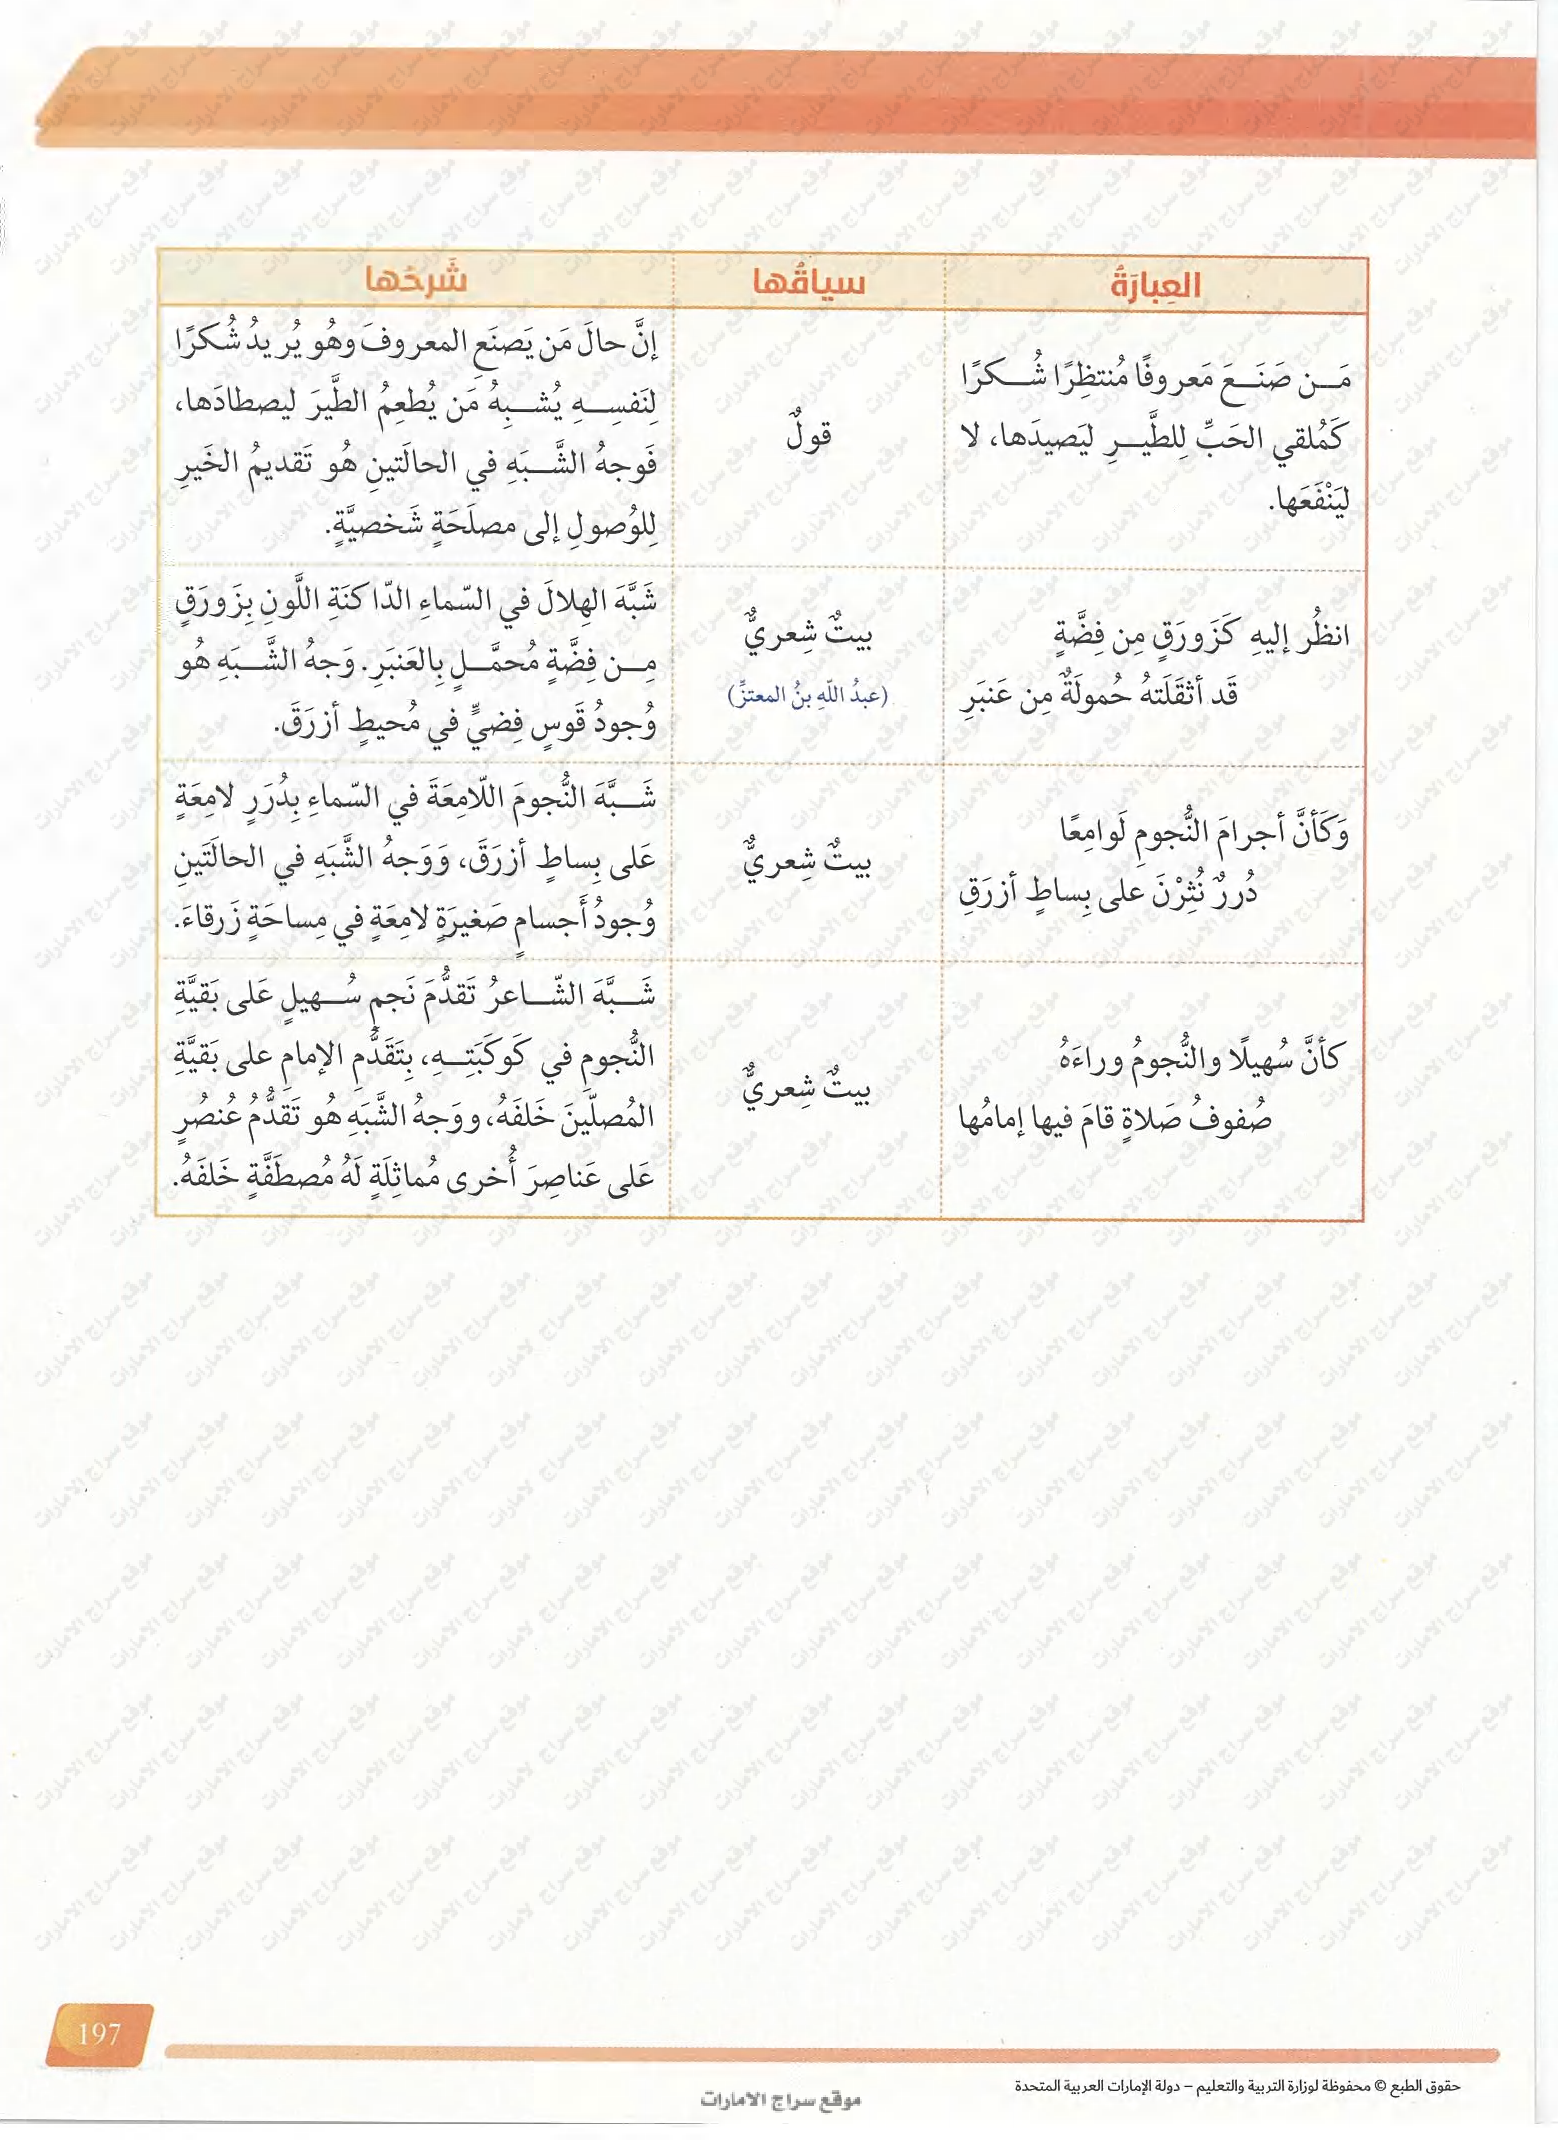 العِبارَةُ
سياقُها
شَرحُها
مَـن صَنَـعَ مَعروفًا مُنتظِرًا شُـكرًا
كَمُلقي الحَبِّ لِلطَّيـرِ ليَصيدَها، لا
ليَنْفَعَها.
قولٌ
إنَّ حالَ مَن يَصنَعِ المعروفَ وهُو يُريدُ شُكرًا
لِنَفسِـهِ يُشـبِهُ مَن يُطعِمُ الطَّيرَ ليصطادَها،
فَوجهُ الشَّـبَهِ في الحالَتينِ هُو تَقديمُ الخَيرِ
لِلوُصولِ إلى مصلَحَةٍ شَخصيَّةٍ.
انظُر إليهِ كَزَورَقٍ مِن فِضَّةٍ
قَد أثقَلَتهُ حُمولَةٌ مِن عَنبَرِ
بيتٌ شِعريٌّ
(عبدُ اللّهِ بنُ المعتزِّ)
شَبَّهَ الهِلالَ في السّماءِ الدّاكنَةِ اللَّونِ بِزَورَقٍ
مِـن فِضَّةٍ مُحمَّـلٍ بِالعَنبَرِ. وَجهُ الشَّـبَهِ هُو
وُجودُ قَوسٍ فِضيٍّ في مُحيطٍ أزرَقَ.
وَكَأنَّ أجرامَ النُّجومِ لَوامِعًا
دُررٌ نُثِرْنَ على بِساطٍ أزرَقِ
بيتٌ شِعريٌّ
شَـبَّهَ النُّجومَ اللّامِعَةَ في السّماءِ بِدُرَرٍ لامِعَةٍ
عَلى بِساطٍ أزرَقَ، وَوَجهُ الشَّبَهِ في الحالَتَينِ
وُجودُ أَجسامٍ صَغيرَةٍ لامِعَةٍ في مِساحَةٍ زَرقاءَ.
كأنَّ سُهيلًا والنُّجومُ وراءَهُ
صُفوفُ صَلاةٍ قامَ فيها إمامُها
بيتٌ شِعريٌّ
شَـبَّهَ الشّـاعرُ تَقدُّمَ نَجمِ سُـهيلٍ عَلى بَقيَّةِ
النُّجومِ في كَوكَبَتِـهِ، بِتَقَدُّمِ الإمامِ على بَقيَّةِ
المُصلّينَ خَلفَهُ، ووَجهُ الشَّبَهِ هُو تَقدُّمُ عُنصُرٍ
عَلى عَناصِرَ أُخرى مُماثِلَةٍ لَهُ مُصطَفَّةٍ خَلفَهُ.
197
حقوق الطبع © محفوظة لوزارة التربية والتعليم – دولة الإمارات العربية المتحدة
موقع سراج الامارات